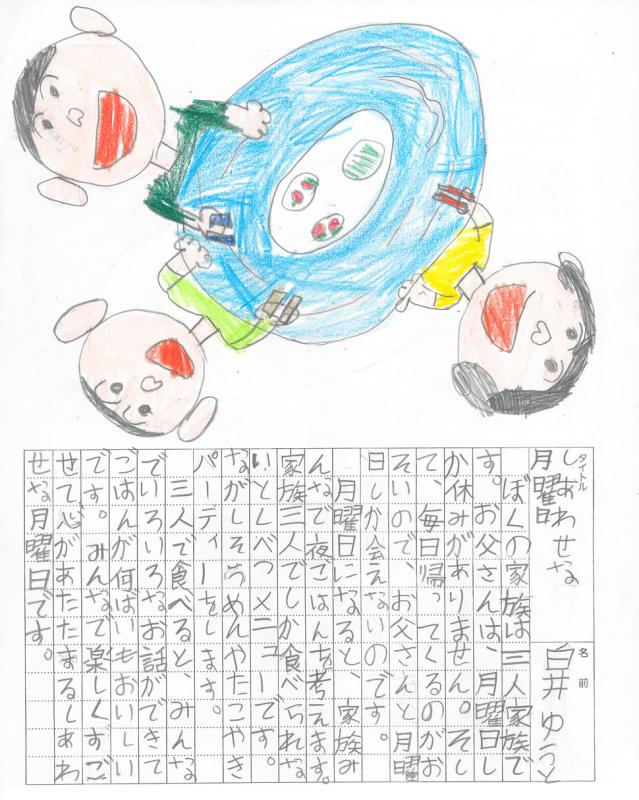 タイトル
しあわせな
月曜日
名前
白井 ゆうと
ぼくの家族は三人家族で
す。お父さんは、月曜日し
か休みがありません。そし
て、毎日帰ってくるのがお
そいので、お父さんと月曜
日しか会えないのです。
月曜日になると、家族み
んなで夜ごはんを考えます。
家族三人でしか食べられな
いとくべつメニューです。
ながしそうめんやたこやき
パーティーをします。
三人で食べると、みんな
でいろいろなお話ができて
ごはんが何ばいもおいしい
です。みんなで楽しくすご
せて、心があたたまるしあわ
せな月曜日です。